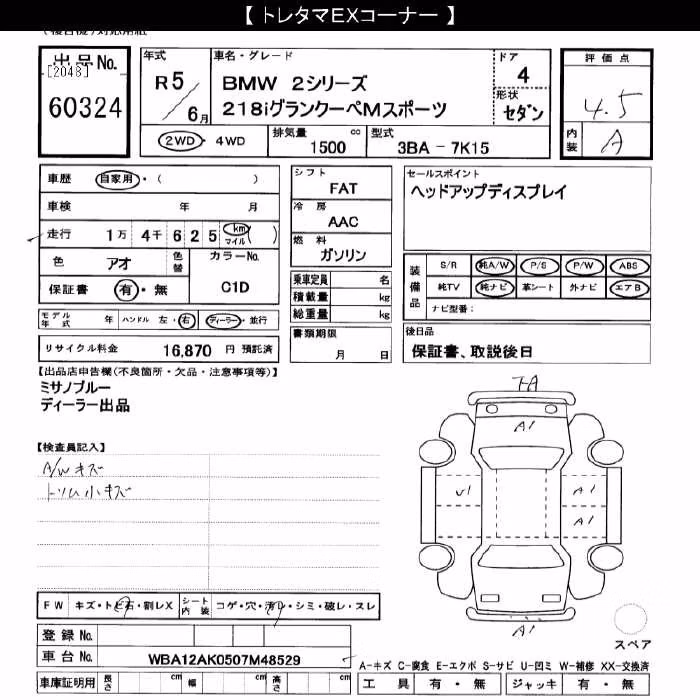 【 トレタマEXコーナー 】
出品No.
[2048]
60324
年式
R5/6月
車名・グレード
BMW 2シリーズ
218iグランクーペMスポーツ
ドア
4
形状
セダン
評価点
4.5
内装
A
2WD・4WD
排気量 1500 cc
型式 3BA - 7K15
車歴 自家用・( )
車検 年 月
走行 1万 4千 6 2 5 km マイル ( )
色 アオ 色替
カラーNo. C1D
保証書 有・無
モデル年式 年 ハンドル 左・右 ディーラー・並行
リサイクル料金 16,870 円 預託済
シフト
FAT
冷房
AAC
燃料
ガソリン
乗車定員 名
積載量 kg
総重量 kg
書類期限
月 日
セールスポイント
ヘッドアップディスプレイ
装備品
S/R 純A/W P/S P/W ABS
純TV 純ナビ 革シート 外ナビ エアB
ナビ型番:
後日品
保証書、取説後日
【出品店申告欄(不良箇所・欠品・注意事項等)】
ミサノブルー
ディーラー出品
【検査員記入】
A/Wキズ
トリム小キズ
FW キズ・トビ石・割レX
シート内装 コゲ・穴・汚レ・シミ・破レ・スレ
登録No.
車台No. WBA12AK0507M48529
車庫証明用 長さ cm 幅 cm 高さ cm
7A
A1
U1
A1
A1
A1
スペア
A-キズ C-腐食 E-エクボ S-サビ U-凹ミ W-補修 XX-交換済
工具 有・無 ジャッキ 有・無